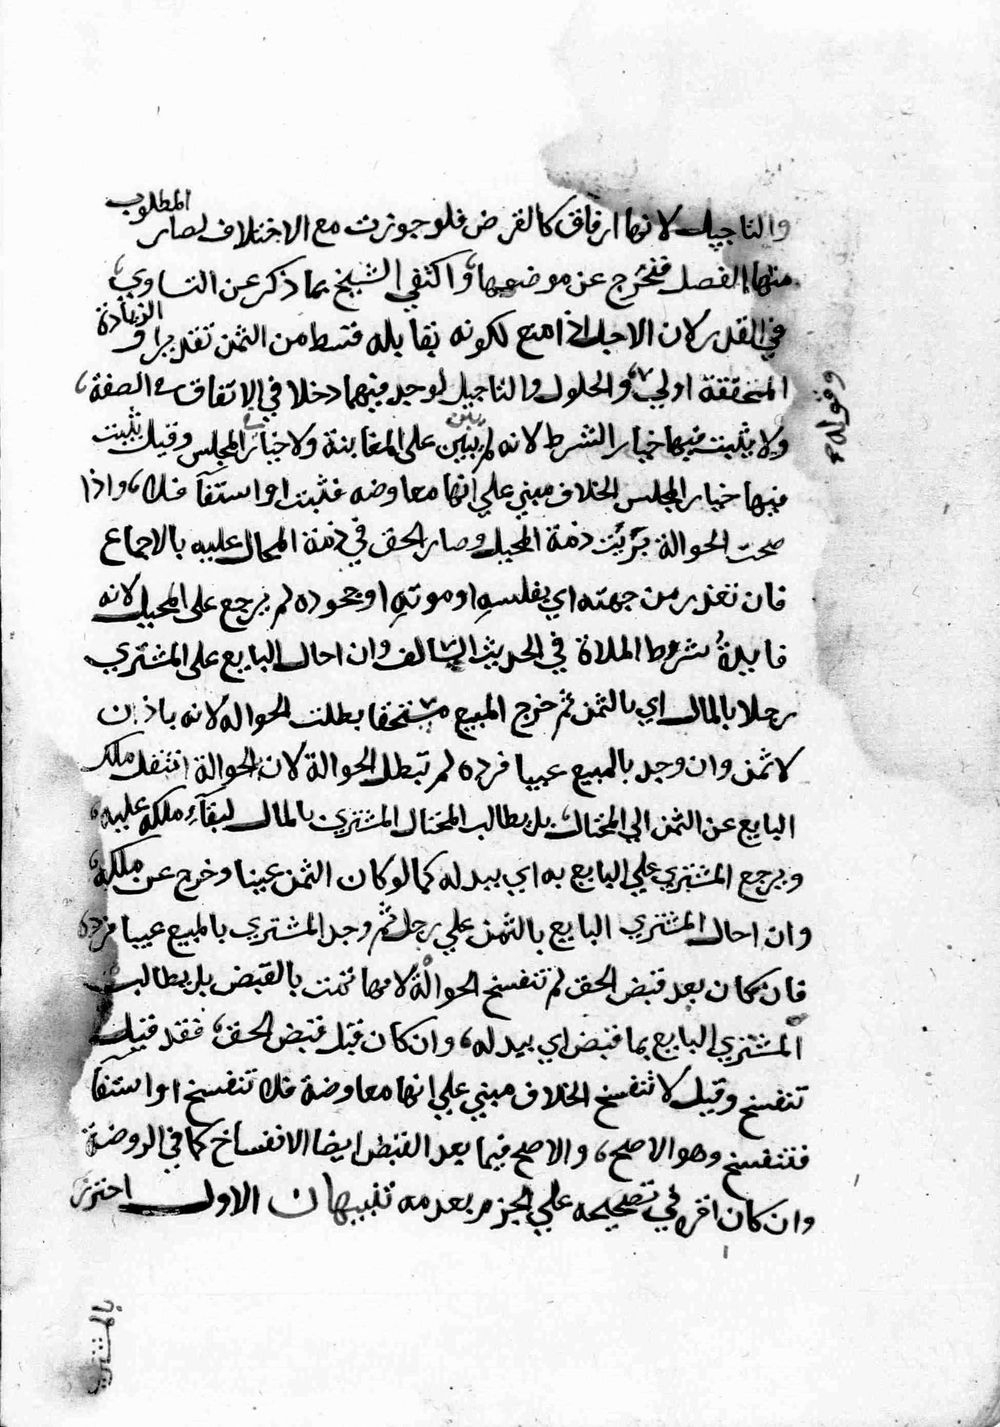 والتاجيل لانها ارفاق كالقرض فلو جوزت مع الاختلاف لصار المطلوب
منها الفصل فتخرج عن موضوعها، واكتفي الشيخ بما ذكر عن التساوي،
في القدر لان الاجل اذا منع لكونه يقابله قسط من الثمن تقديرا والزيادة
المتحققة اولي، والحلول والتاجيل لوجد فيهما دخلا في الاتفاق في الصفة،
وقوله
ولا يثبت فيها خيار الشرط لانه لم يبين على المغابنة ولا خيار المجلس وقيل يثبت
فيها خيار المجلس الخلاف مبني علي انها معاوضه فثبت او استيفآ فلا، واذا
صحت الحوالة برئت ذمة المحيل وصار الحق في ذمة المحال عليه بالاجماع
فان تعذر من جهته اي بفلسه او موته او جحوده لم يرجع على المحيل لانه
فايدة شروط الملاة في الحديث السالف وان احال البايع على المشتري
رجلا بالمال اي بالثمن ثم خرج المبيع مستحقا بطلت الحواله لانه بان ان
لا ثمن وان وجد بالمبيع عيبا فرده لم تبطل الحوالة لان الحوالة انتقل ملك
البايع عن الثمن الي المحتال، بل يطالب المحتال المشتري بالمال لبقآء ملكه عليه،
ويرجع المشتري علي البايع به اي ببدله كما لو كان الثمن عينا وخرج عن ملكه،
وان احال المشتري البايع بالثمن علي رجل ثم وجد المشتري بالمبيع عيبا فرده
فان كان بعد قبض الحق لم تنفسخ الحوالة لانها تمت بالقبض بل يطالب
المشتري البايع بما قبض اي ببدله، وان كان قبل قبض الحق، فقد قيل
تنفسخ وقيل لا تنفسخ الخلاف مبني علي انها معاوضة فلا تنفسخ او استيفا
فتنفسخ وهو الاصح، والاصح فيما بعد القبض ايضا الانفساخ كما في الروضة
وان كان اقره في تصحيحه علي الجزم بعدمه تنبيهان الاول احترز
بالمشتري